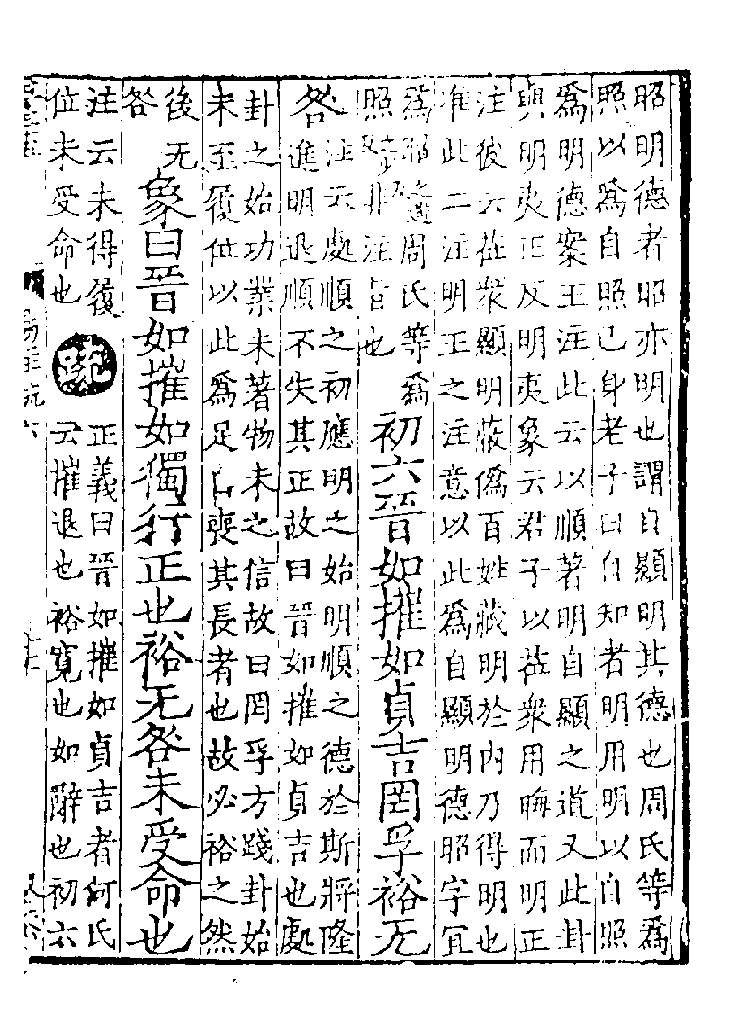 昭明德者昭亦明也謂自顯明其德也周氏等爲
照以爲自照己身老子曰自知者明用明以自照
爲明德案王注此云以順著明自顯之道又此卦
與明夷正反明夷象云君子以莅衆用晦而明正
注彼云莅衆顯明蔽僞百姓藏明於内乃得明也
准此二注明王之注意以此爲自顯明德昭字宜
爲昭周氏等爲
照非注旨也
初六晉如摧如貞吉罔孚裕无
咎
注云處順之初應明之始明順之德於斯將隆
進明退順不失其正故曰晉如摧如貞吉也處
卦之始功業未著物未之信故曰罔孚方踐卦始
未至履位以此爲足自喪其長者也故必裕之然
後无
咎
象曰晉如摧如獨行正也裕无咎未受命也
注云未得履
位未受命也
疏
正義曰晉如摧如貞吉者何氏
云摧退也裕寛也如辭也初六